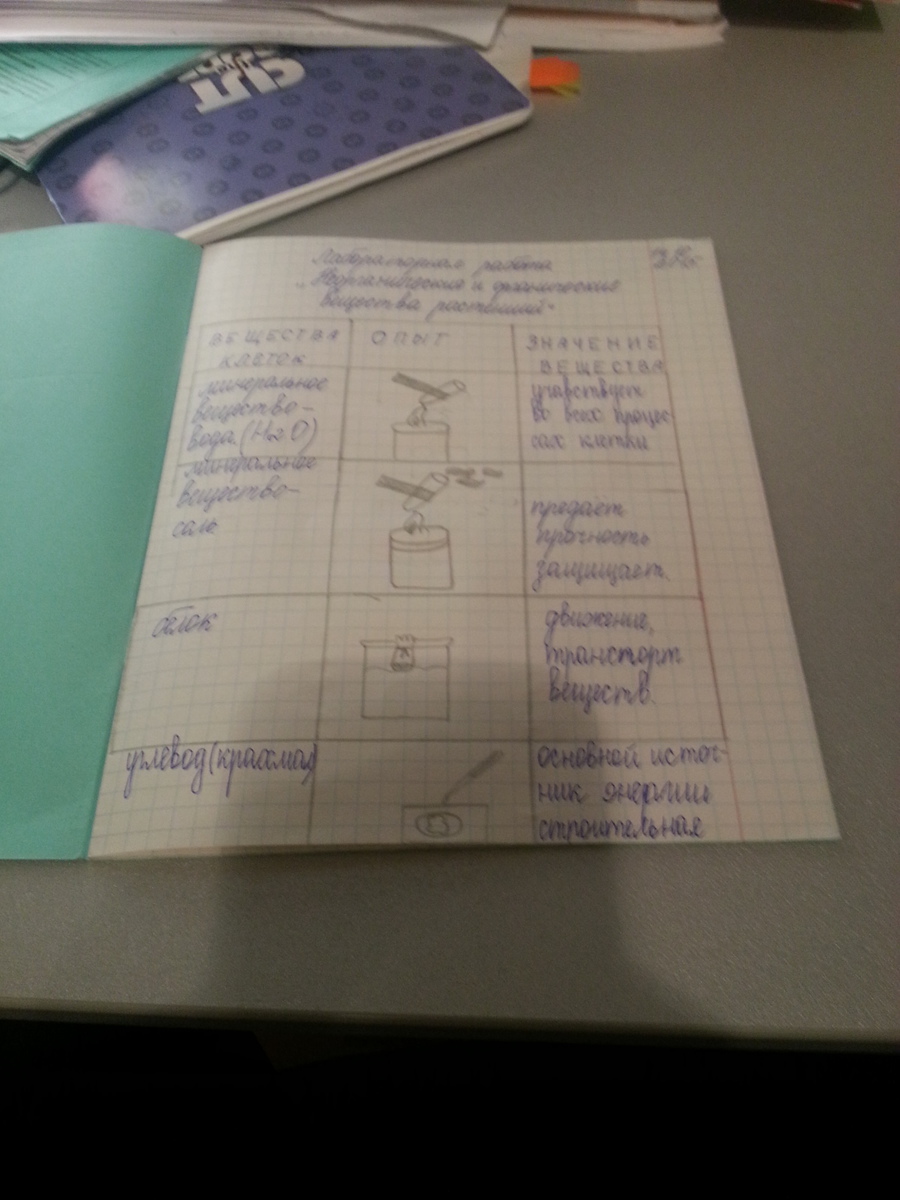 Лабораторная работа
"Неорганические и органические
вещества растений"
ВЕЩЕСТВА
КЛЕТОК
ОПЫТ
ЗНАЧЕНИЕ
ВЕЩЕСТВА
минеральное
вещество-
вода (H2O)
участвует
во всех процес-
сах клетки
минеральное
вещество-
соль
предаёт
прочность
защищает.
белок
движение,
транспорт
веществ.
углевод (крахмал)
основной источ-
ник энергии
строительная